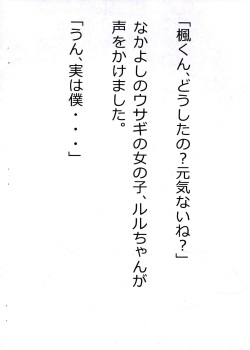 「楓くん、どうしたの?元気ないね?」
なかよしのウサギの女の子、ルルちゃんが
声をかけました。
「うん、実は僕・・・」